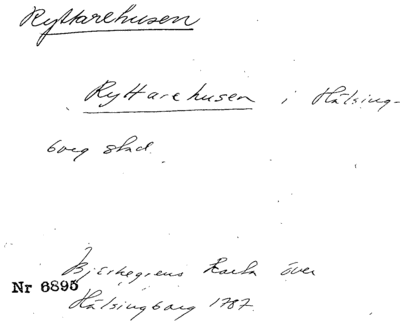 Ryttarehusen
Ryttarehusen i Hälsing-
borg stad.
Bjerkegrens karta över
Nr 6895
Hälsingborg 1787.